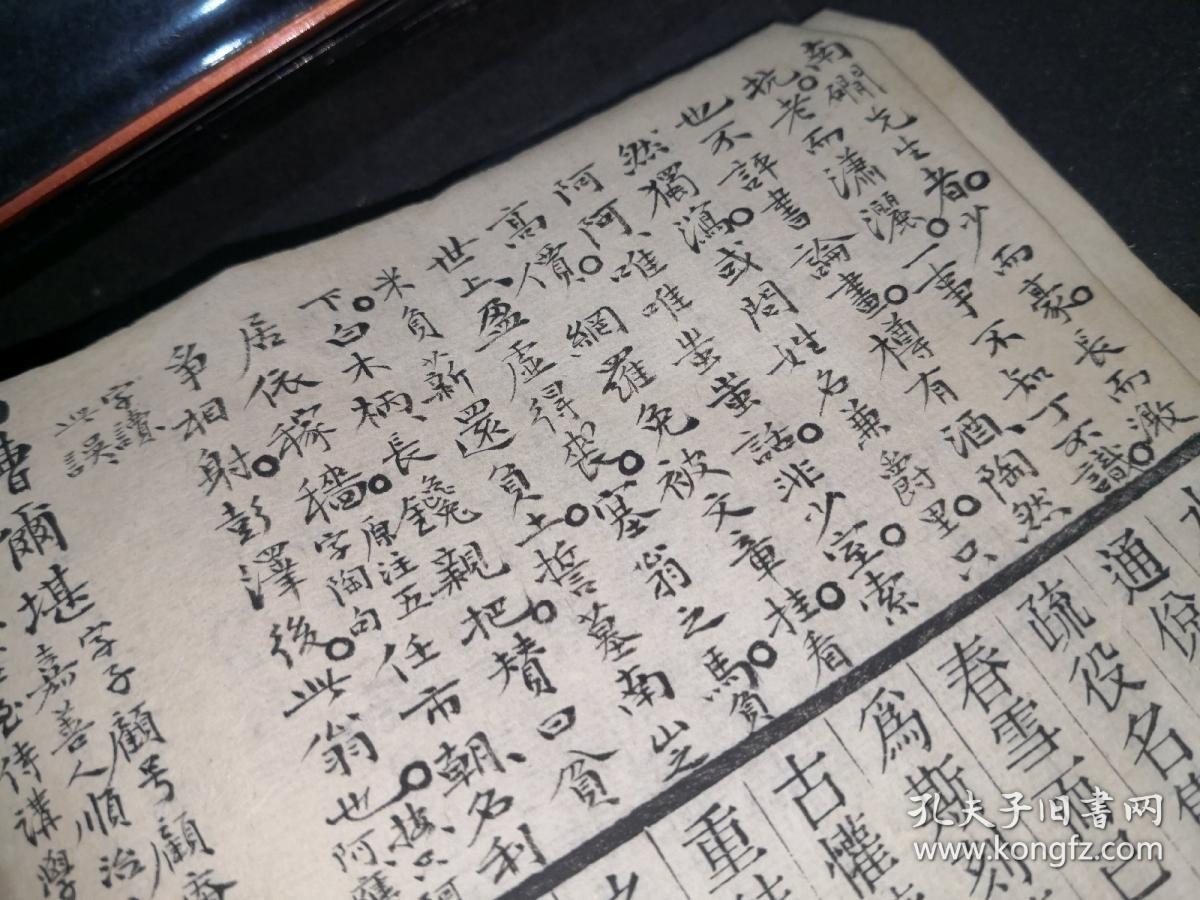 南磵先生者。少而豪。長而激
抗。老而瀟灑。一事不知。丁不識。
也不評書論畫。樽有酒。陶然
然獨瀉。或問姓名兼爵里。只
阿阿。唯唯蚩蚩話。非少室索
高價。網羅免被文章挂。看
世上盈虛得喪。塞翁之馬。負
米負薪還負土。誓墓南山之
下。白木柄。長鑱親把。贊曰貧
居依稼穡。原注五字陶句任市朝。名利
爭相射。彭澤後。此翁也。按只阿
阿應
字讀
此誤
曹爾堪 字子顧号顧
嘉善人順治
侍講學
通俗
疏役名
春雪而已
爲斯刻
古懽
重
孔夫子旧書网
www.kongfz.com